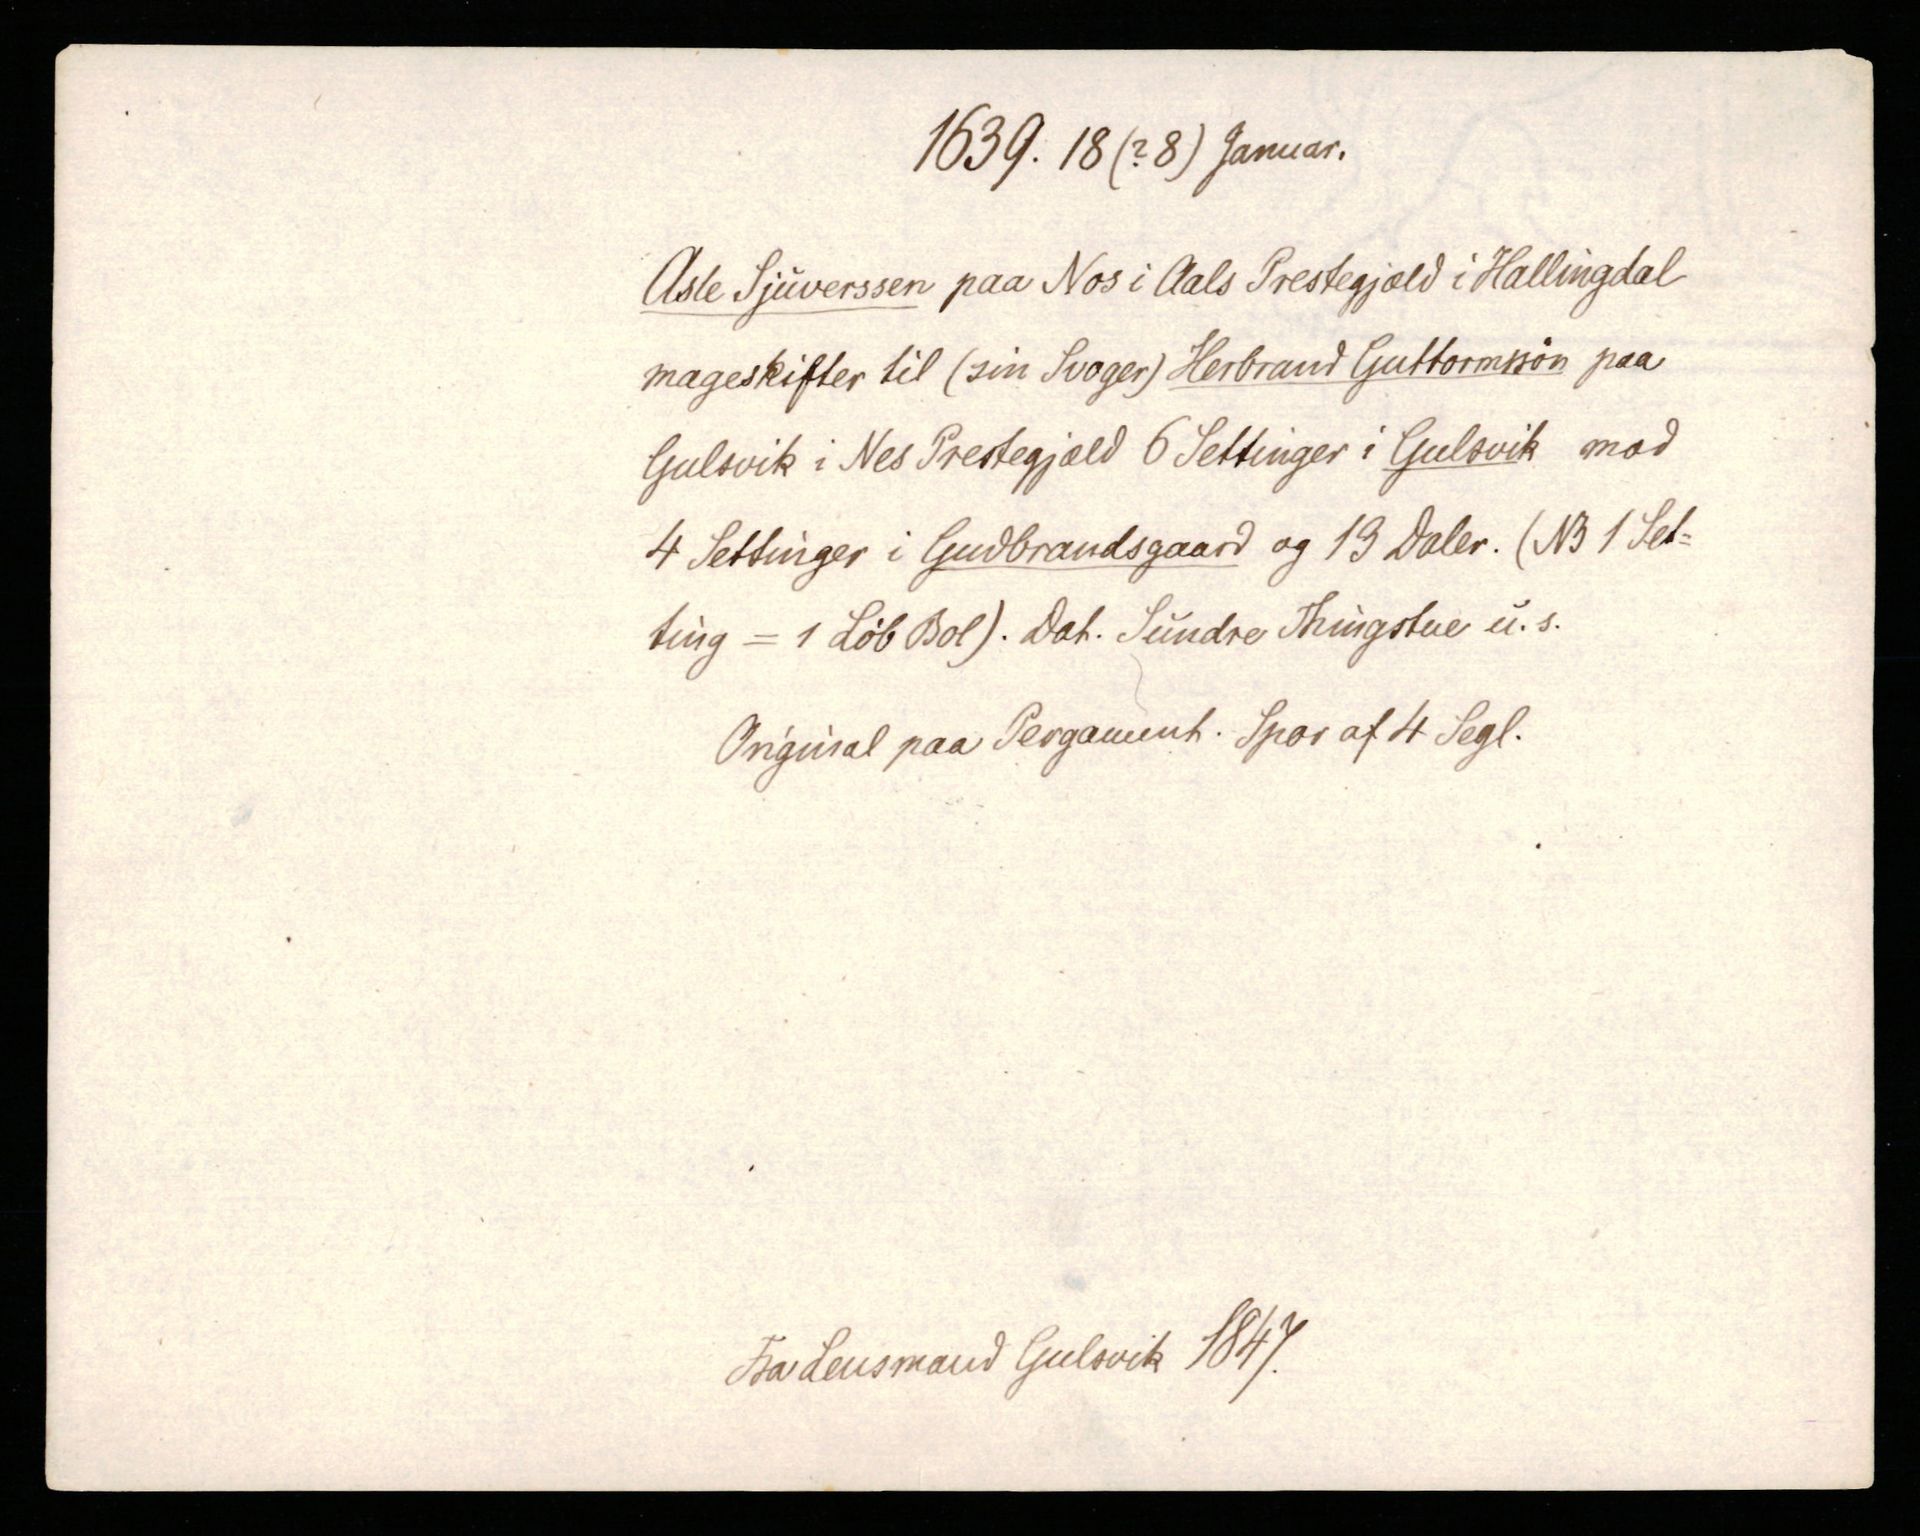 1639. 18 (? 8) Januar.
Asle Sjuverssen paa Nos i Aals Prestegjæld i Hallingdal
mageskifter til (sin Svoger) Herbrand Guttormssön paa
Gulsvik i Nes Prestegjæld 6 Settinger i Gulsvik mod
4 Settinger i Gudbrandsgaard og 13 Daler. (NB 1 Set=
ting = 1 Löb Bol). Dat. Sundre Thingstue u. s.
Original paa Pergament. Spor af 4 Segl.
Fra Lensmand Gulsvik 1847.